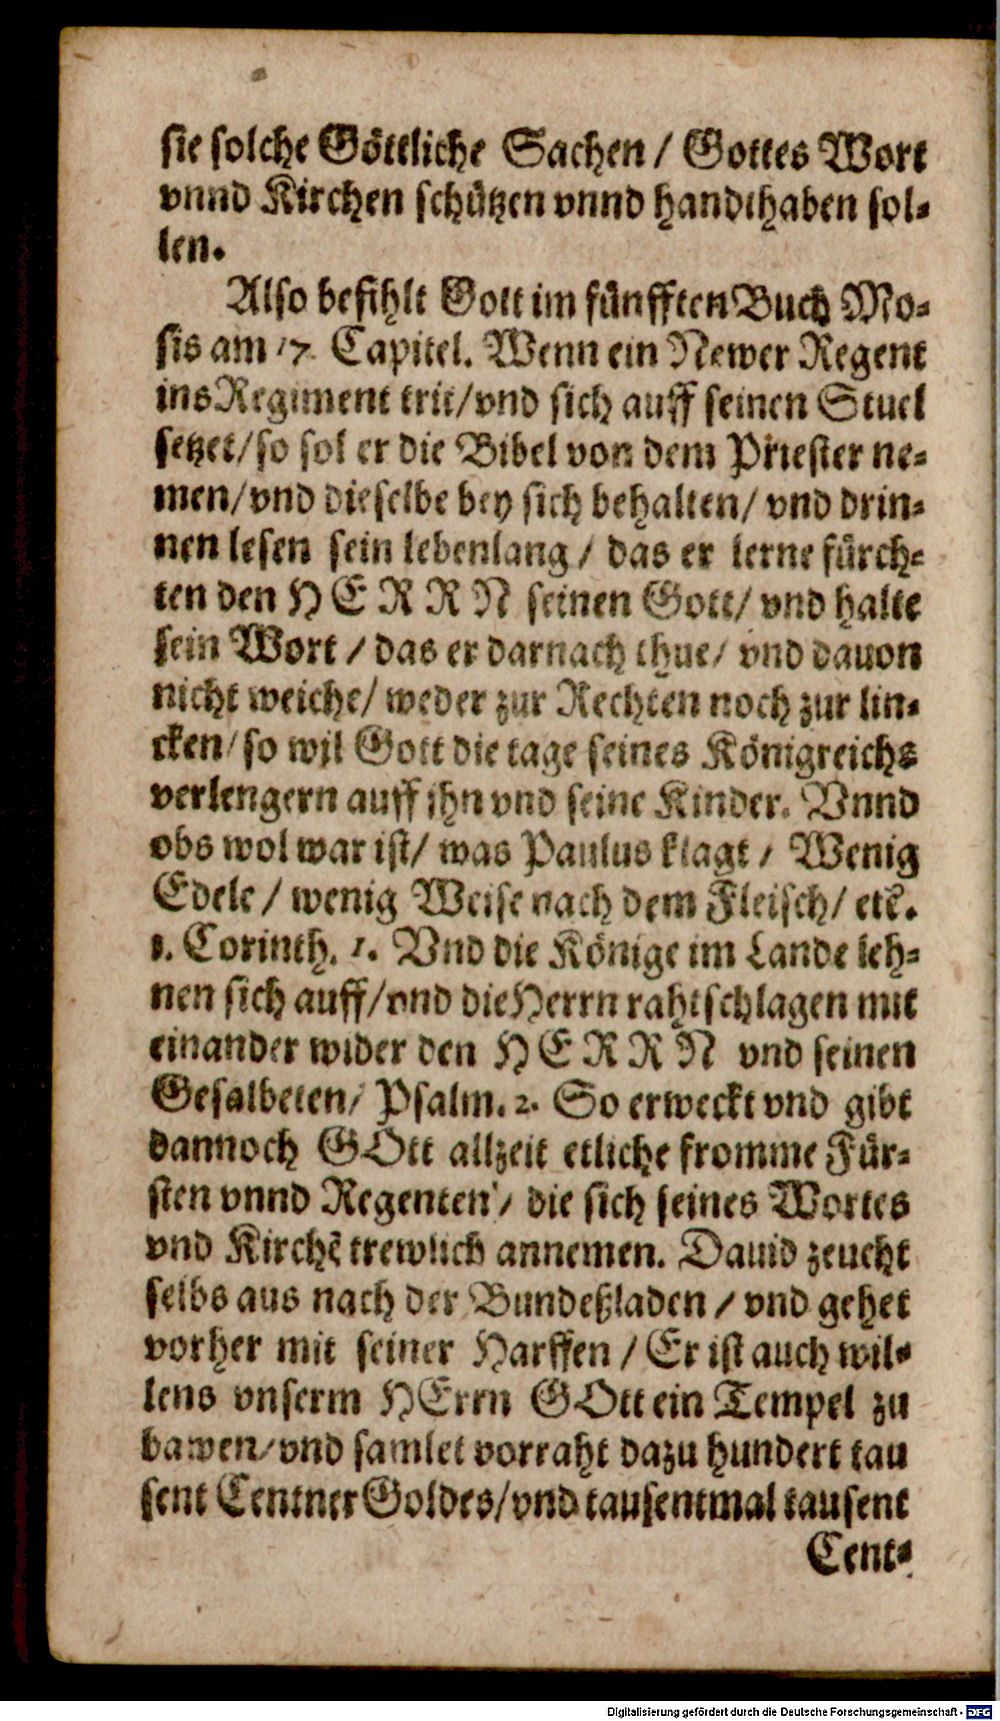 sie solche Göttliche Sachen / Gottes Wort
vnnd Kirchen schützen vnnd handthaben sol-
len.
Also befihlt Gott im fünfften Buch Mo-
sis am 17. Capitel. Wenn ein Newer Regent
ins Regiment trit/ vnd sich auff seinen Stuel
setzet/ so sol er die Bibel von dem Priester ne-
men/ vnd dieselbe bey sich behalten/ vnd drin-
nen lesen sein lebenlang / das er lerne fürch-
ten den HERRN seinen Gott/ vnd halte
sein Wort / das er darnach thue/ vnd dauon
nicht weiche/ weder zur Rechten noch zur lin-
cken/ so wil Gott die tage seines Königreichs
verlengern auff ihn vnd seine Kinder. Vnnd
obs wol war ist/ was Paulus klagt / Wenig
Edele / wenig Weise nach dem Fleisch/ etc.
1. Corinth. 1. Vnd die Könige im Lande leh-
nen sich auff/ vnd die Herrn rahtschlagen mit
einander wider den HERRN vnd seinen
Gesalbeten/ Psalm. 2. So erweckt vnd gibt
dannoch GOtt allzeit etliche fromme Für-
sten vnnd Regenten / die sich seines Wortes
vnd Kirchẽ trewlich annemen. Dauid zeucht
selbs aus nach der Bundeßladen / vnd gehet
vorher mit seiner Harffen / Er ist auch wil-
lens vnserm HErrn GOtt ein Tempel zu
bawen/ vnd samlet vorraht dazu hundert tau
sent Centner Goldes/ vnd tausentmal tausent
Cent-
Digitalisierung gefördert durch die Deutsche Forschungsgemeinschaft - DFG